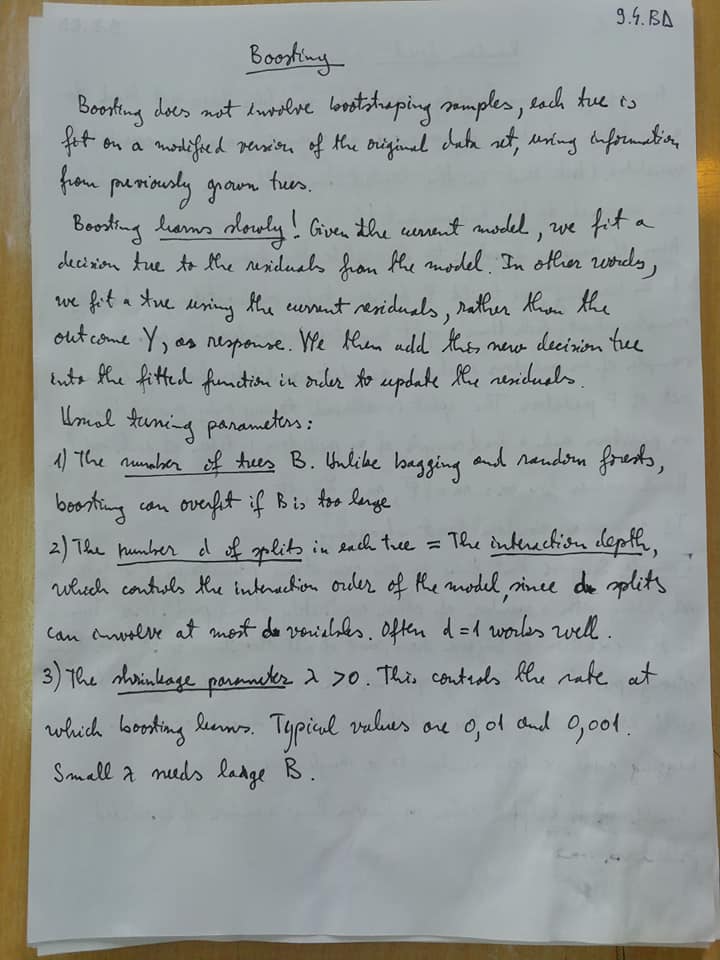 9.4.BΔ
Boosting
Boosting does not involve bootstraping samples, each tree is
fit on a modified version of the original data set, using information
from previously grown trees.
Boosting learns slowly! Given the current model, we fit a
decision tree to the residuals from the model. In other words,
we fit a tree using the current residuals, rather than the
outcome Y, as response. We then add this new decision tree
into the fitted function in order to update the residuals.
Usual tuning parameters:
1) The number of trees B. Unlike bagging and random forests,
boosting can overfit if B is too large
2) The number d of splits in each tree = The interaction depth,
which controls the interaction order of the model, since d splits
can involve at most d variables. Often d=1 works well.
3) The shrinkage parameter λ >0. This controls the rate at
which boosting learns. Typical values are 0,01 and 0,001.
Small λ needs large B.